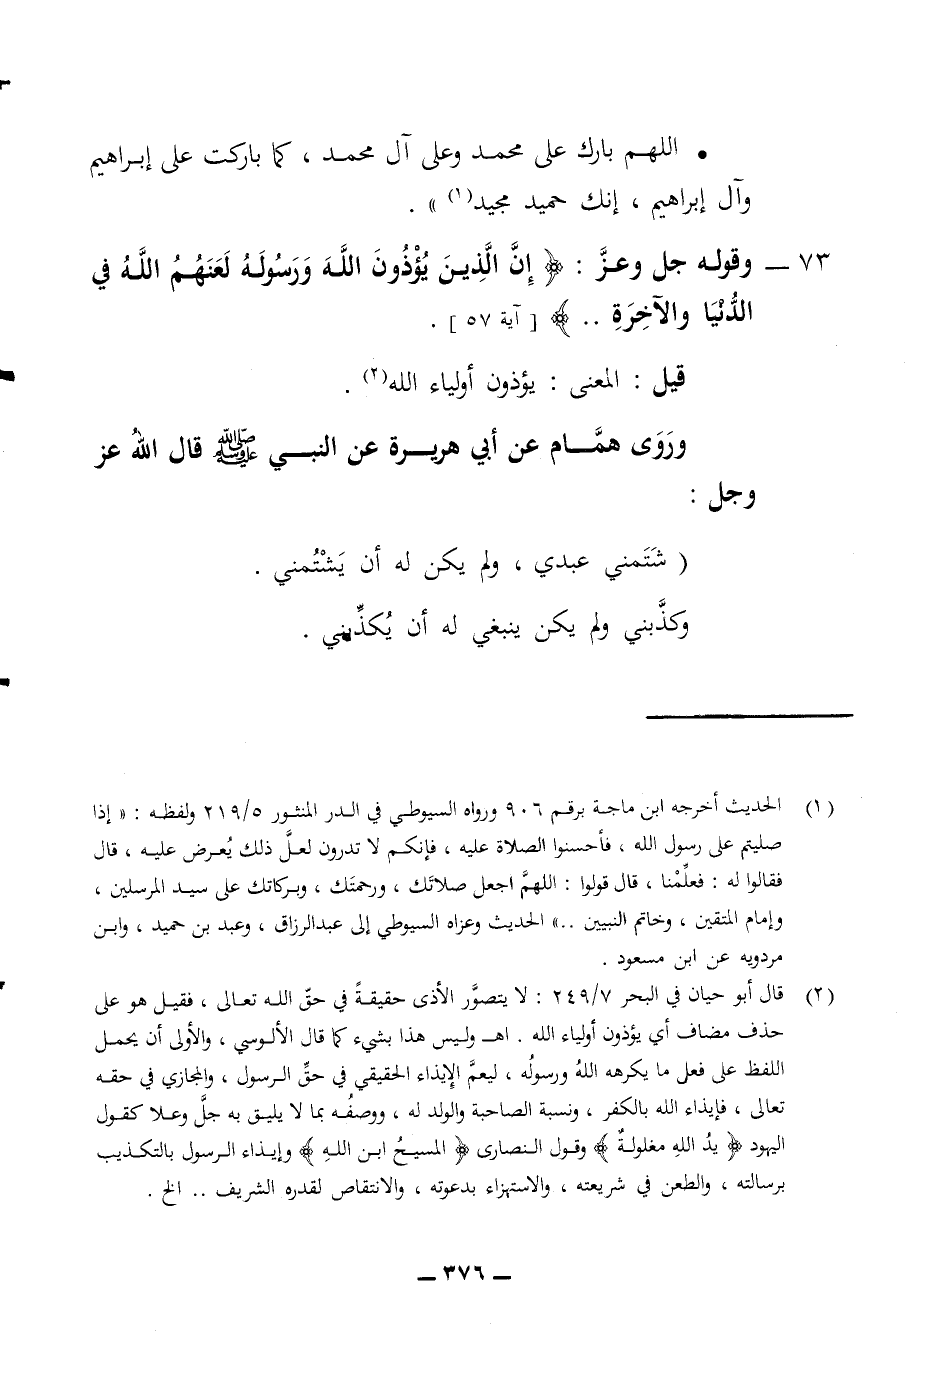 • اللهم بارك على محمد وعلى آل محمد ، كما باركت على إبراهيم
وآل إبراهيم ، إنك حميد مجيد(١) » .
٧٣ ــ وقوله جل وعزَّ : ﴿ إِنَّ الَّذِينَ يُؤْذُونَ اللَّهَ وَرَسُولَهُ لَعَنَهُمُ اللَّهُ فِي
الدُّنْيَا والآخِرَةِ .. ﴾ [ آية ٥٧ ] .
قيل : المعنى : يؤذون أولياء الله(٢) .
ورَوَى همَّام عن أبي هريرة عن النبي ﷺ قال اللهُ عز
وجل :
( شَتَمني عبدي ، ولم يكن له أن يَشْتُمني .
وكذَّبني ولم يكن ينبغي له أن يُكذِّبني .
(١) الحديث أخرجه ابن ماجة برقم ٩٠٦ ورواه السيوطي في الدر المنثور ٢١٩/٥ ولفظه : « إذا
صليتم على رسول الله ، فأحسنوا الصلاة عليه ، فإنكم لا تدرون لعلَّ ذلك يُعرض عليه ، قال
فقالوا له : فعلِّمْنا ، قال قولوا : اللهمَّ اجعل صلاتَك ، ورحمتَك ، وبركاتك على سيد المرسلين ،
وإمام المتقين ، وخاتم النبيين ..» الحديث وعزاه السيوطي إلى عبدالرزاق ، وعبد بن حميد ، وابن
مردويه عن ابن مسعود .
(٢) قال أبو حيان في البحر ٢٤٩/٧ : لا يتصوَّر الأذى حقيقةً في حقّ الله تعالى ، فقيل هو على
حذف مضاف أي يؤذون أولياء الله . اهـ وليس هذا بشيء كما قال الألوسي ، والأولى أن يحمل
اللفظ على فعل ما يكرهه اللهُ ورسولُه ، ليعمَّ الإيذاء الحقيقي في حقِّ الرسول ، والمجازي في حقه
تعالى ، فإيذاء الله بالكفر ، ونسبة الصاحبة والولد له ، ووصفُه بما لا يليق به جلَّ وعلا كقول
اليهود ﴿ يدُ اللهِ مغلولةٌ ﴾ وقول النصارى ﴿ المسيحُ ابن اللهِ ﴾ وإيذاء الرسول بالتكذيب
برسالته ، والطعن في شريعته ، والاستهزاء بدعوته ، والانتقاص لقدره الشريف .. الخ .
ــ ٣٧٦ ــ